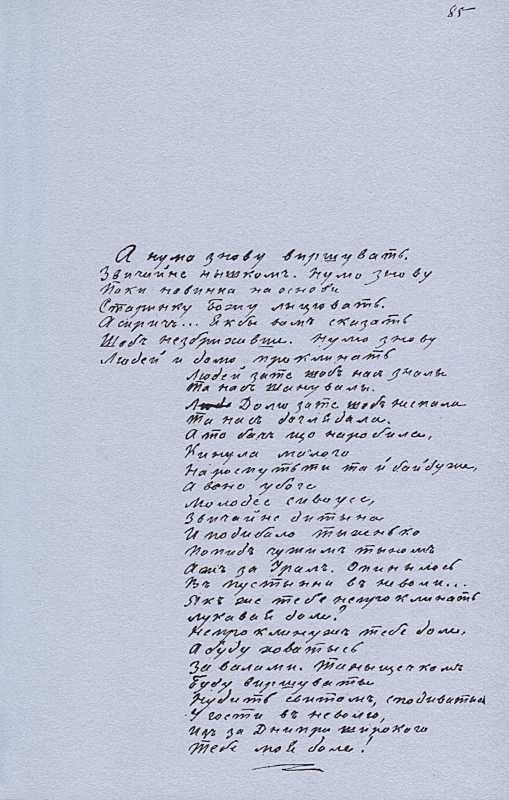 85
А нумо знову виршувать.
Звичайне нышкомъ. Нумо знову
Поки новинка на основи
Старинку Божу лыцювать.
А сиричь... Якбы вамъ сказать
Щобъ незбрихавше. Нумо знову
Людей и долю проклинать
Людей зате щобъ насъ зналы
Та насъ шанувалы.
Долю зате щобъ неспала
Та насъ доглядала.
А то бачъ що наробила,
Кинула малого
На роспутьти та й байдуже,
А воно убоге
Молодее сивоусе,
Звичайне дитына
И подыбало тыхенько
Попидъ чужимъ тыномъ
Ажъ за Уралъ. Опинылось
Въ пустыни въ неволи...
Якъ же тебе непроклинать
Лукавая доле?
Непроклинужъ тебе доле,
А буду ховатысь
За валами. Та нышечкомъ
Буду виршуваты
Нудить свитомъ, сподиватысь
У гости въ неволю,
Изъ за Днипра широкого
Тебе моя доле!